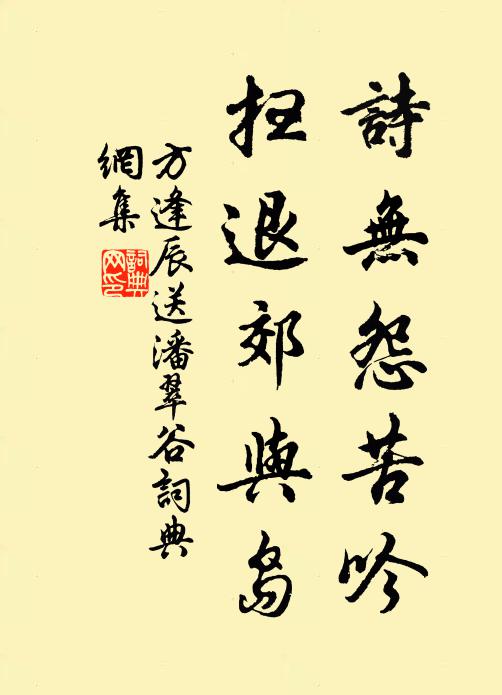 詩無怨苦吟
退郊與島
方逢辰送潘翠谷詞典
網集
詞典
網印